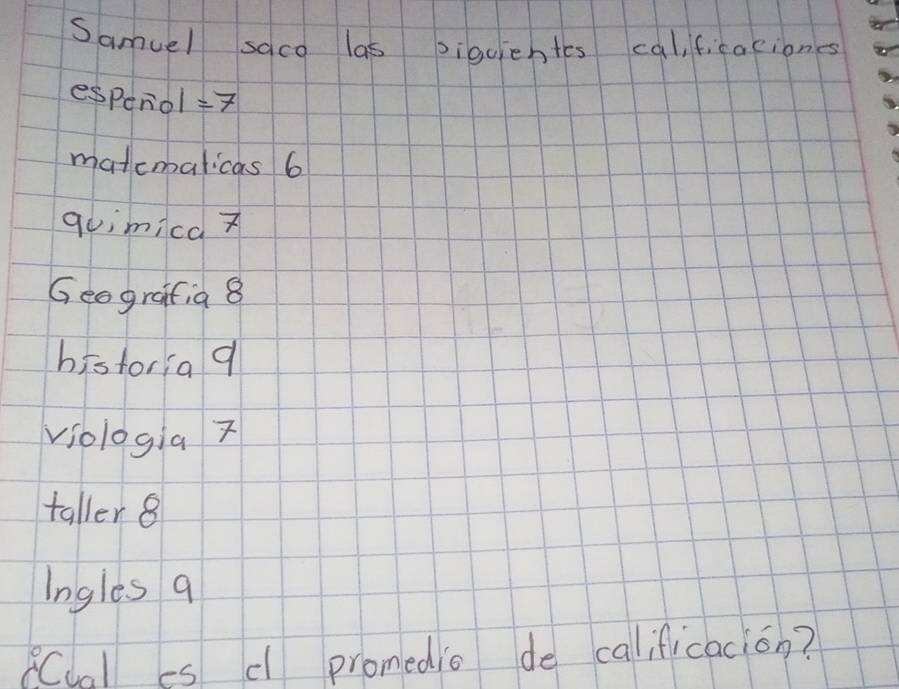 Samuel saco las siguientes calificaciones
español = 7
matematicas 6
quimica 7
Geografia 8
historia 9
viologia 7
taller 8
Ingles 9
¿Cual es el promedio de calificación?